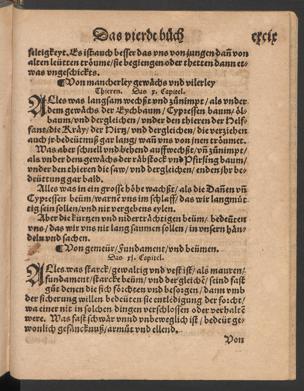 Das vierdt bůch cxcix
seligkeyt. Es ist auch besser das vns von jungen dañ von
alten leütten trôume / sie begiengen oder thetten dann et-
was vngeschickts.
¶Von mancherley gewåchs vnd vilerley
Thieren. Das x. Capitel.
ALles was langsam wechßt vnd zůnimpt / als vnder
dem gewåchs der Eychbaum / Cypressen baum / ôl-
baum / vnd dergleichen / vnder den thieren der Helf-
fant / die Kråy / der Hirtz / vnd dergleichen / die verziehen
auch jr bedeütnuß gar lang / wañ vns von jnen troumet.
Was aber schnell vnd behend auffwechßt / vñ zůnimpt /
als vnder dem gewåchs der råbstock vnd Pfirsing baum /
vnder den thieren die saw / vnd dergleichen / enden jhr be-
deüttung gar bald.
Alles was in ein grosse hôhe wachßt / als die Dañen vñ
Cypressen beüm / warnē vns im schlaff / das wir langmüt-
tig sein sollen / vnd nit vergebens eylen.
Aber die kurtzen vnd niderträchtigen beüm / bedeüten
vns / das wir vns nit lang saumen sollen / in vnsern hån-
deln vnd sachen.
¶Von gemeür / Fundament / vnd beümen.
Das xj. Capitel.
ALles was starck / gewaltig vnd vest ist / als mauren /
fundament / starcke beüm / vnd dergleichē / seind fast
gůt denen die sich fôrchten vnd besorgen / dann vnd
der sicherung willen bedeüten sie entledigung der forcht /
wa einer nit in solchen dingen verschlossen oder verhalten
were. Was fast schwår vnnd vnbeweglich ist / bedeüt ge-
wonlich gefåncknuß / armůt vnd ellend.
Von